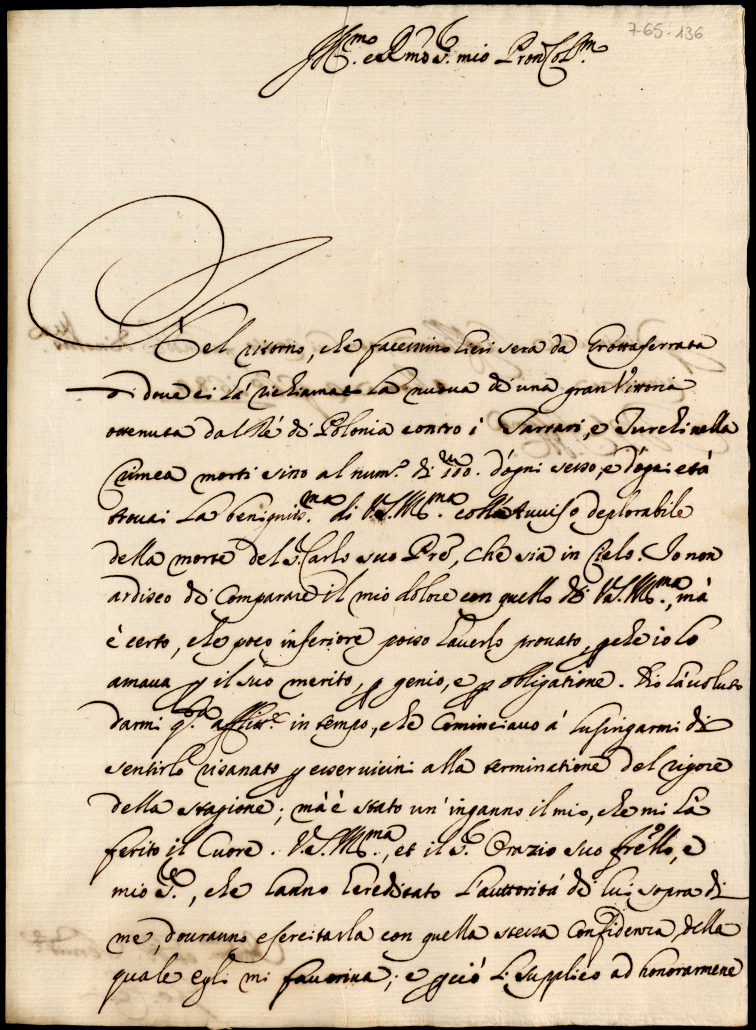 7-65-136
Ill.mo e R.mo S.r mio Pron Col.mo
Nel ritorno, che facemmo hieri sera da Grottaferrata
di dove ci hà richiamato la nuova di una gran Vittoria
ottenuta dal Rè di Polonia contro i Tartari, e Turchi nella
Crimea morti sino al num.o di 110. d'ogni sesso, e d'ogni età
trovai la benignis.ma di V.S.Ill.ma coll'Avviso deplorabile
della morte del S. Carlo suo Pre, che sia in Cielo. Io non
ardisco di comparare il mio dolore con quello di V.S.Ill.ma, mà
è certo, che poco inferiore posso haverlo provato, p che io lo
amava p il suo merito, p genio, e p obligatione. Dio hà voluto
darmi q.a afflitt.e in tempo, che cominciavo à lusingarmi di
sentirlo risanato p esser vicini alla terminatione del rigore
della stagione; mà è stato un'inganno il mio, che mi hà
ferito il Cuore. V.S.Ill.ma, et il S.r Orazio suo frello, e
mio S.r, che hanno hereditato l'auttorità di lui sopra di
me, dovranno esercitarla con quella stessa Confidenza della
quale egli mi favoriva; e p ciò li supplico ad honorarmene